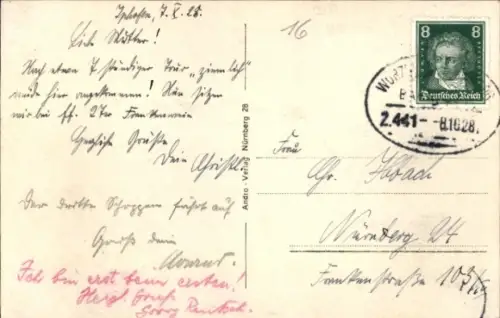 Iphofen, 7.X.28.
Lieb. Mutter!
Nach etwa 7 stündiger Tour „ziemlich"
müde hier angekommen! Nun sitzen
wir bei ff. 27er Frankenwein
Herzliche Grüße
Dein
Der dritte Schoppen fährt auf
Gruß dein
Konrad.
Ich bin erst beim ersten!
Herzl. Gruß
Georg
Andro-Verlag Nürnberg 28
16
8 8
Deutsches Reich
2.441 - 8.10.28.
Frau
Nürnberg 24
Frankenstraße